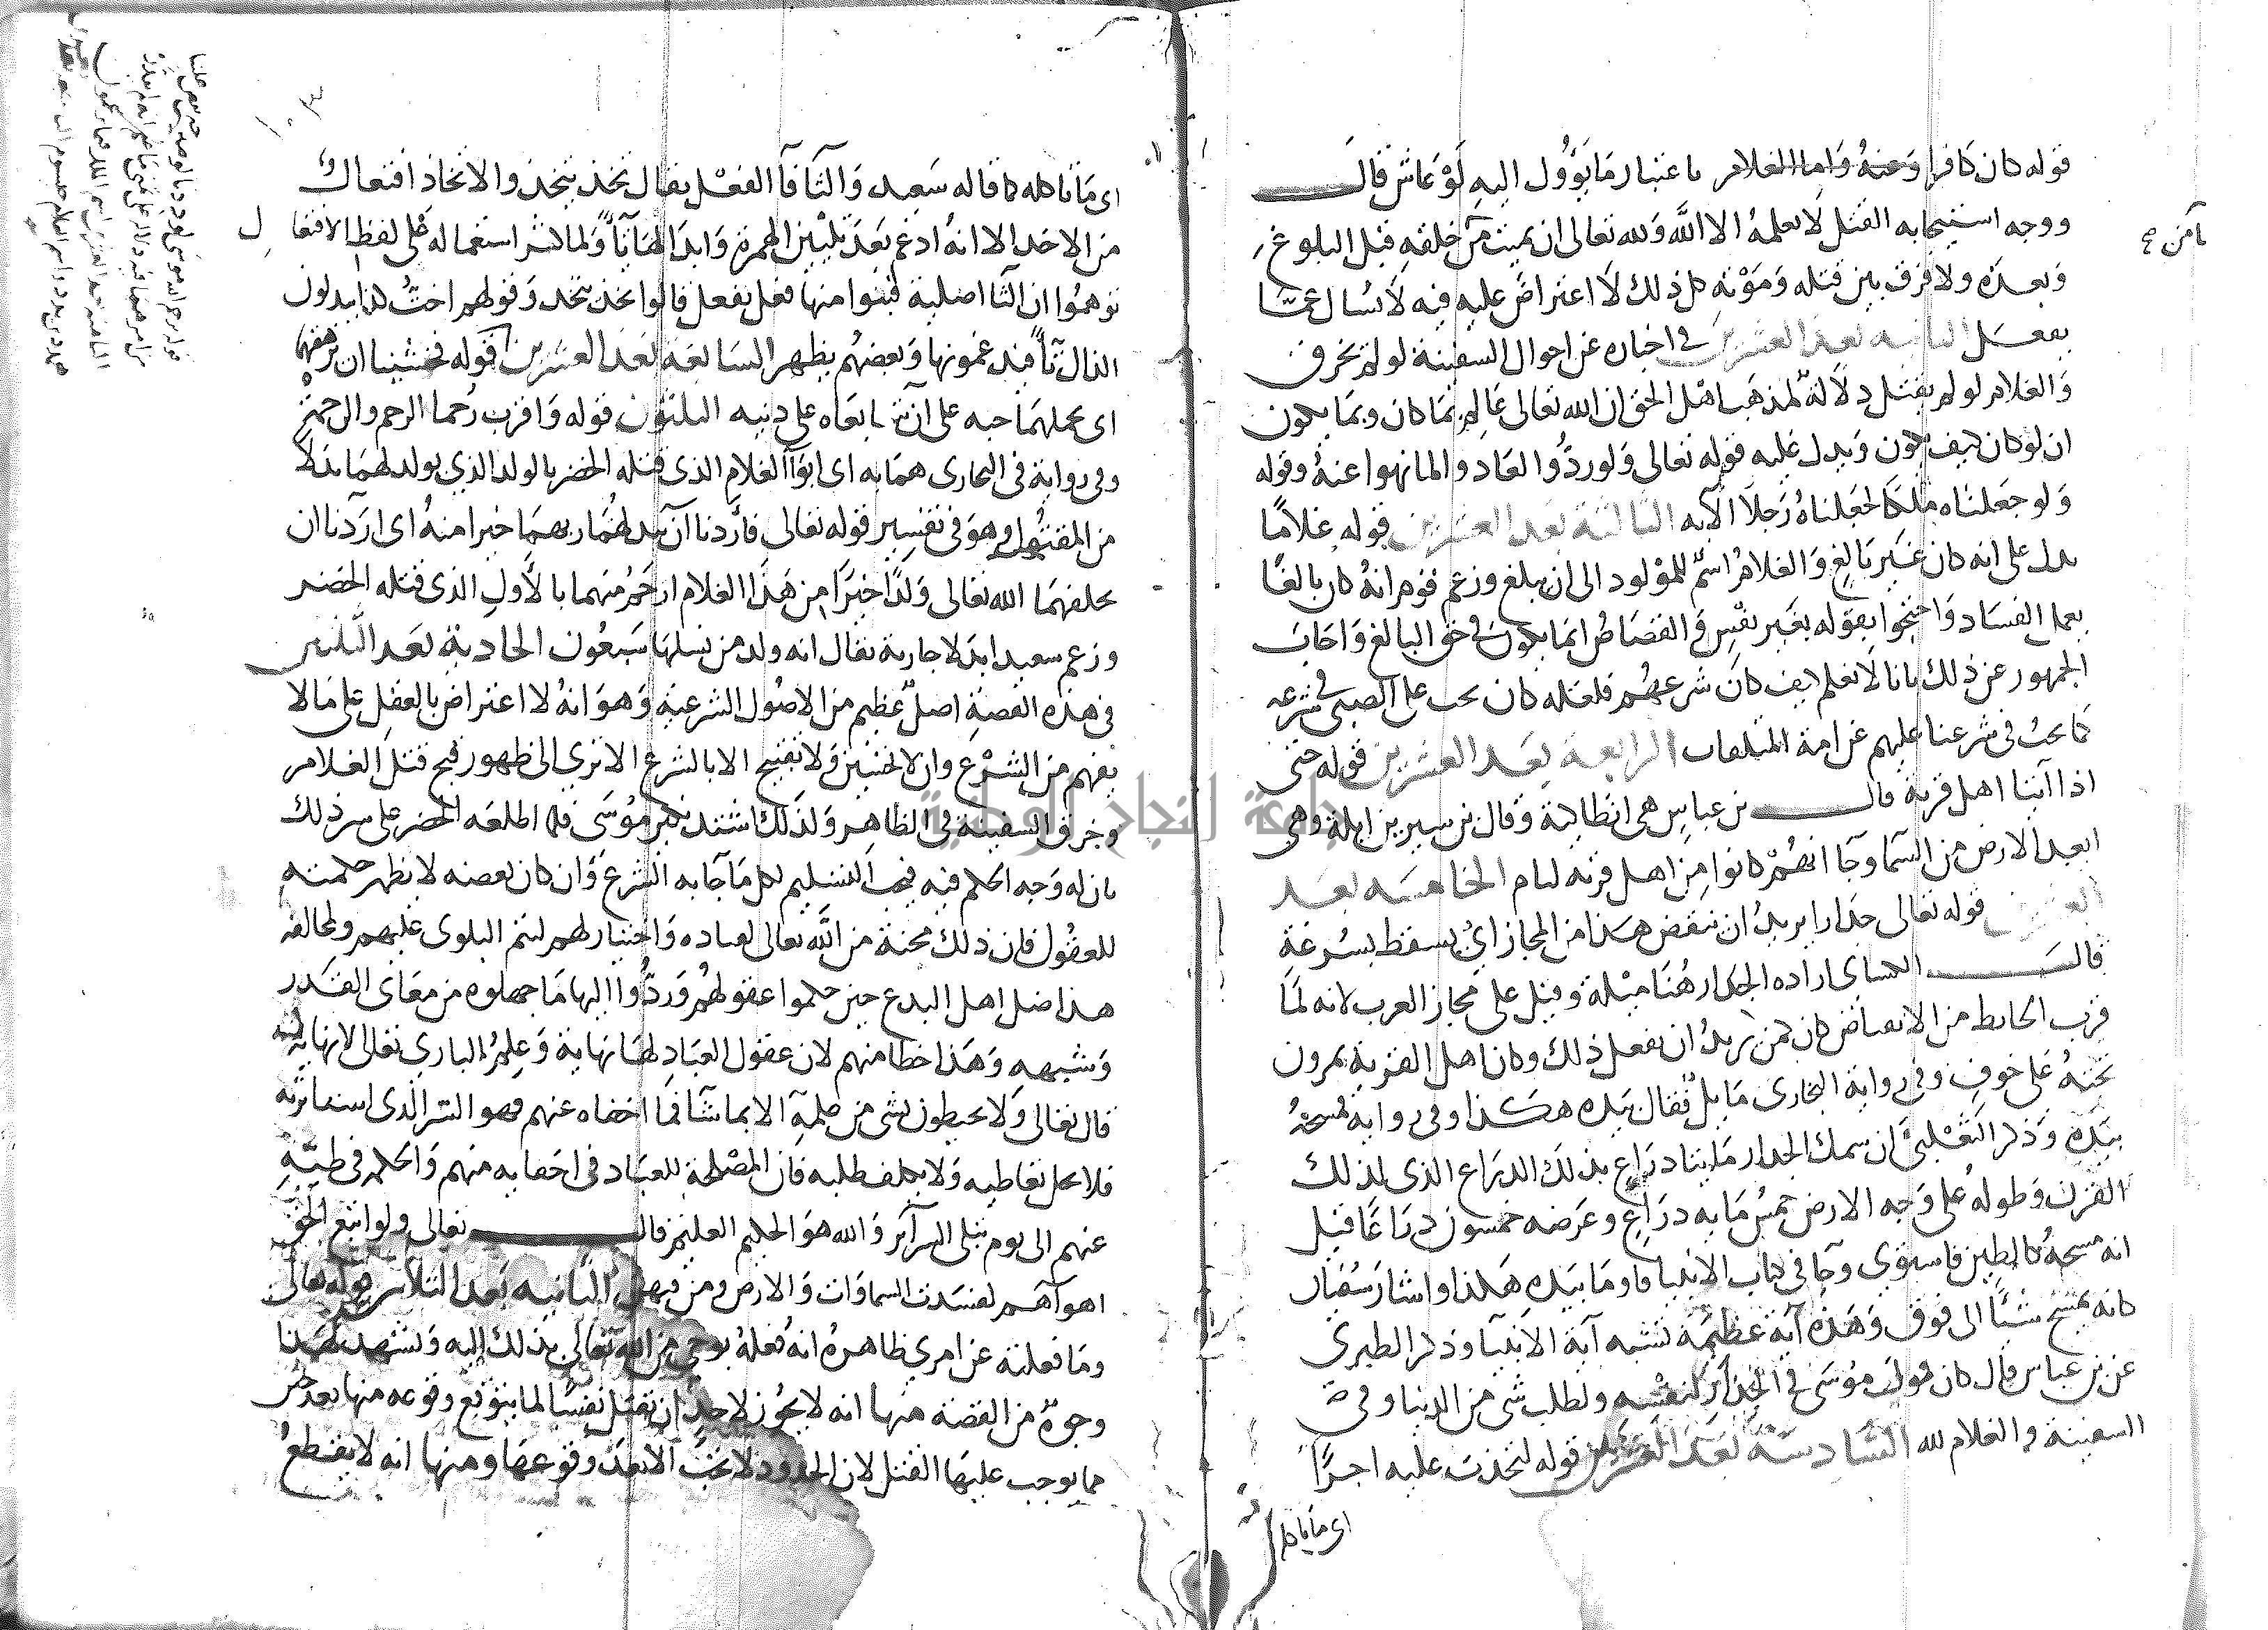 قوله كان كافرا وعنه واما الغلام باعتبار ما يؤول اليه لو عاش قال
ووجه استيجابه القتل لا يعلمه الا الله ولله تعالى ان يميت من خلقه قبل البلوغ
يا من صح
وبعده ولا فرق بين قتله وموته كل ذلك لا اعتراض عليه فيه لا يسال عما
يفعل الثانيه بعد العشرين في اخباره عن احوال السفينة لو لم تخرق
والغلام لو لم يقتل دلالة لمذهب اهل الحق ان الله تعالى عالم بما كان وبما يكون
ان لو كان كيف يكون ويدل عليه قوله تعالى ولو ردوا لعادوا لما نهوا عنه وقوله
ولو جعلناه ملكا لجعلناه رجلا الآيه الثالثة بعد العشرين قوله غلاما
يدل على انه كان غير بالغ والغلام اسم للمولود الى ان يبلغ وزعم قوم انه كان بالغا
يعمل الفساد واحتجوا بقوله بغير نفس والقصاص انما يكون في حق البالغ واجاب
الجمهور عن ذلك بانا لا نعلم كيف كان شرعهم فلعله كان يجب على الصبي في شرعه
كما يجب في شرعنا عليهم غرامة المتلفات الرابعة بعد العشرين قوله حتى
اذا اتيا اهل قرية قال بن عباس هي انطاكية وقال بن سيرين ايلة وهي
ابعد الارض من السما وجا انهم كانوا من اهل قرية ليام الخامسه بعد
العشرين قوله تعالى جدارا يريد ان ينقض هذا من المجاز اي يسقط بسرعة
قال الكساى اراده الجدار هنا ميله وقيل على مجاز العرب لانه لما
قرب الحايط من الانقضاض كان كمن يريد ان يفعل ذلك وكان اهل القرية يمرون
تحته على خوف وفي رواية البخارى مايل فقال بيده هكذا وفي رواية فمسحه
بيده وذكر الثعلبي ان سمك الجدار مايتا دراع بذلك الدراع الذى لذلك
القرن وطوله على وجه الارض خمس مايه دراع وعرضه خمسون دراعا قيل
انه مسحه كالطين فاستوي وجا في كتاب الانبيا فاوما بيده هكذا واشار سفيان
كانه يمسح شئا الى فوق وهذه آية عظيمة تشبه آية الانبيا وذكر الطبري
عن بن عباس قال كان قول موسى في الجدار لنفسه ولطلب شي من الدنيا وفي
السفينة والغلام لله السادسة بعد العشرين قوله لتخذت عليه اجرا
اى ما ناكله
اى ما ناكله كما قاله سعيد والتا فآ الفعل يقال تخذ يتخذ والاتخاذ افتعال
من الاخذ الا انه ادغم بعد تليين الهمزة وابدالها تآ ولما كثر استعماله على لفظ الافتعا
ل
توهموا ان التا اصلية فبنوا منها فعل يفعل قالوا تخذ يتخذ وقولهم اخت كذا يبدلون
الذال تآ فيدغمونها وبعضهم يظهر السابعة بعد العشرين قوله فخشينا ان يرهقهما
اى يحملهما حبه على ان يتابعاه على دينه الثلثون قوله واقرب رحما الرحم والرحمة
وفي رواية في البخارى هما به اى ابوا الغلام الذى قتله الخضر بالولد الذي يولد لهما بدلا
من المقتول وهو في تفسير قوله تعالى فأردنا ان يبدلهما ربهما خيرا منه اى اردنا ان
يخلفهما الله تعالى ولدا خيرا من هذا الغلام ارحم منهما بالاول الذى قتله الخضر
وزعم سعيد ابدلا جارية يقال انه ولد من نسلها سبعون الحادية بعد الثلثين
في هذه القصة اصل عظيم من الاصول الشرعية وهو انه لا اعتراض بالعقل على ما لا
يفهم من الشرع وان لا تحسين ولا تقبيح الا بالشرع الا تري الى ظهور قبح قتل الغلام
وخرق السفينة في الظاهر ولذلك اشتد نكير موسى فلما اطلعه الخضر على سر ذلك
بان له وجه الحكم فيه فيجب التسليم لكل ما جآ به الشرع وان كان بعضه لا يظهر حكمته
للعقول فان ذلك محنة من الله تعالى لعباده واختبار لهم لتتم البلوى عليهم ولمخالفه
هذا ضل اهل البدع حين حكموا عقولهم وردوا اليها ما جهلوه من معاى القدر
وشبهه وهذا خطا منهم لان عقول العباد لها نهاية وعلم البارى تعالى لا نهاية له
قال تعالى ولا يحيطون بشى من علمه الا بما شآ فما اخفاه عنهم فهو السر الذى استاثر به
فلا يحل تعاطيه ولا يكلف طلبه فان المصلحة للعباد في اخفايه منهم والحكمه في طيه
عنهم الى يوم تبلى السرآير والله هو الحكيم العليم قال تعالى ولو اتبع الحق
اهوآهم لفسدت السماوات والارض ومن فيهن الثانيه بعد الثلاثين قوله تعالى
وما فعلته عن امري ظاهره انه فعله بوحي من الله تعالى بذلك اليه ويشهد لهذا
وجوه من القصة منها انه لا يجوز لاحد ان يقتل نفسا لما يتوقع وقوعه منها بعد حين
مما يوجب عليها القتل لان الحدود لا تجب الا بعد وقوعها ومنها انه لا يقطع